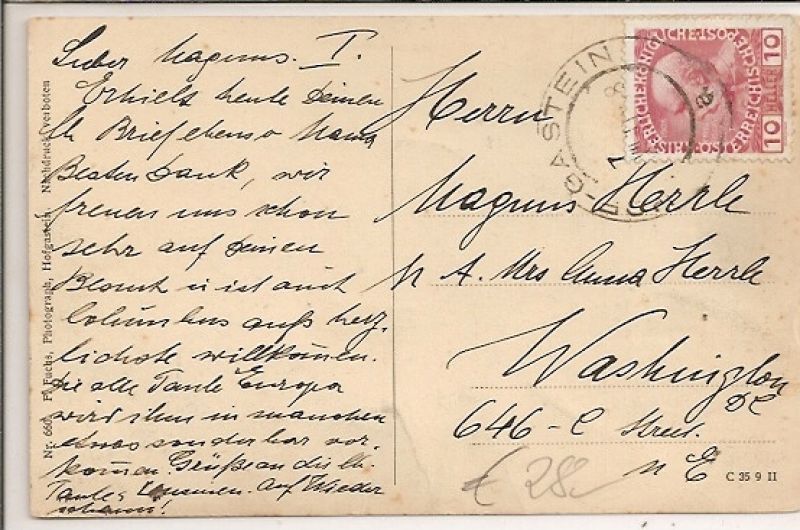 Lieber Magnus. I.
Erhielt heute Deinen
lb Brief ebenso Mama
Besten Dank, wir
freuen uns schon
sehr auf Deinen
Besuch u ist auch
Columbus aufs herz-
lichste willkomen.
Die alte Tante Europa
wird ihm in manchen
etwas sonderbar vor-
komen. Grüße an die lb
Tante Auf Wieder
schaun!
Nr. 660 Fr. Fuchs, Photograph, Hofgastein. Nachdruck verboten
GASTEIN
KAISERLICHE KÖNIGLICHE ÖSTERREICHISCHE POST
10 HELLER 10
Herrn
Magnus Herrle
A. Mrs Anna Herrle
Washington
DC
646-C Street.
N E
€ 28.-
C 35 9 II